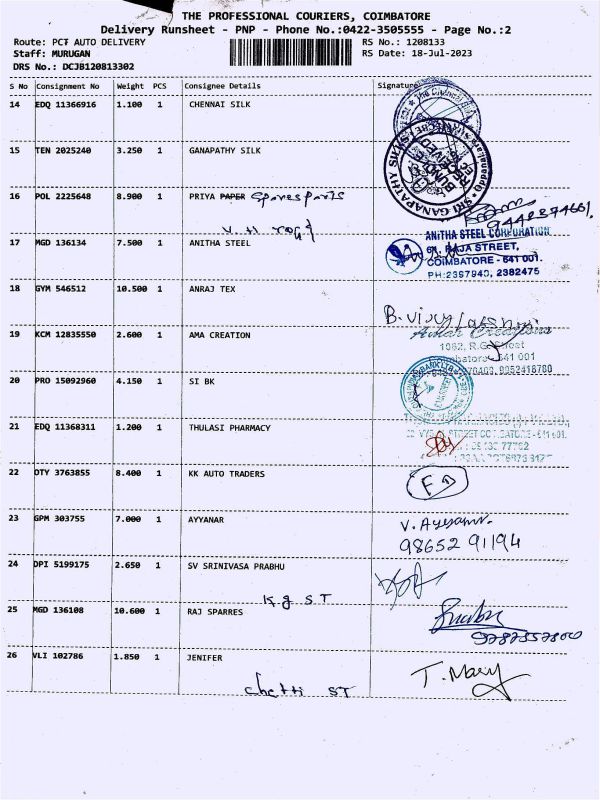 THE PROFESSIONAL COURIERS, COIMBATORE
Delivery Runsheet - PNP - Phone No.:0422-3505555 - Page No.:2
Route: PCT AUTO DELIVERY
RS No.: 1208133
Staff: MURUGAN
RS Date: 18-Jul-2023
DRS No.: DCJB120813302
S No Consignment No Weight PCS Consignee Details Signature
14 EDQ 11366916 1.100 1 CHENNAI SILK
15 TEN 2025240 3.250 1 GANAPATHY SILK
SRI GANAPATHY SILKS
16 POL 2225648 8.900 1 PRIYA PAPER Spares parts
V. H road
17 MGD 136134 7.500 1 ANITHA STEEL
ANITHA STEEL CORPORATION
RAJA STREET,
COIMBATORE - 641 001.
PH:2397940, 2382475
18 GYM 546512 10.500 1 ANRAJ TEX
B. Vijay Lakshmi
19 KCM 12835550 2.600 1 AMA CREATION
Amar Creations
1082, R.G. Street
641 001
20 PRO 15092960 4.150 1 SI BK
21 EDQ 11368311 1.200 1 THULASI PHARMACY
22 OTY 3763855 8.400 1 KK AUTO TRADERS
23 GPM 303755 7.000 1 AYYANAR
98652 91194
24 DPI 5199175 2.650 1 SV SRINIVASA PRABHU
K.g ST
25 MGD 136108 10.600 1 RAJ SPARRES
26 VLI 102786 1.850 1 JENIFER
T. Mary
chetti ST